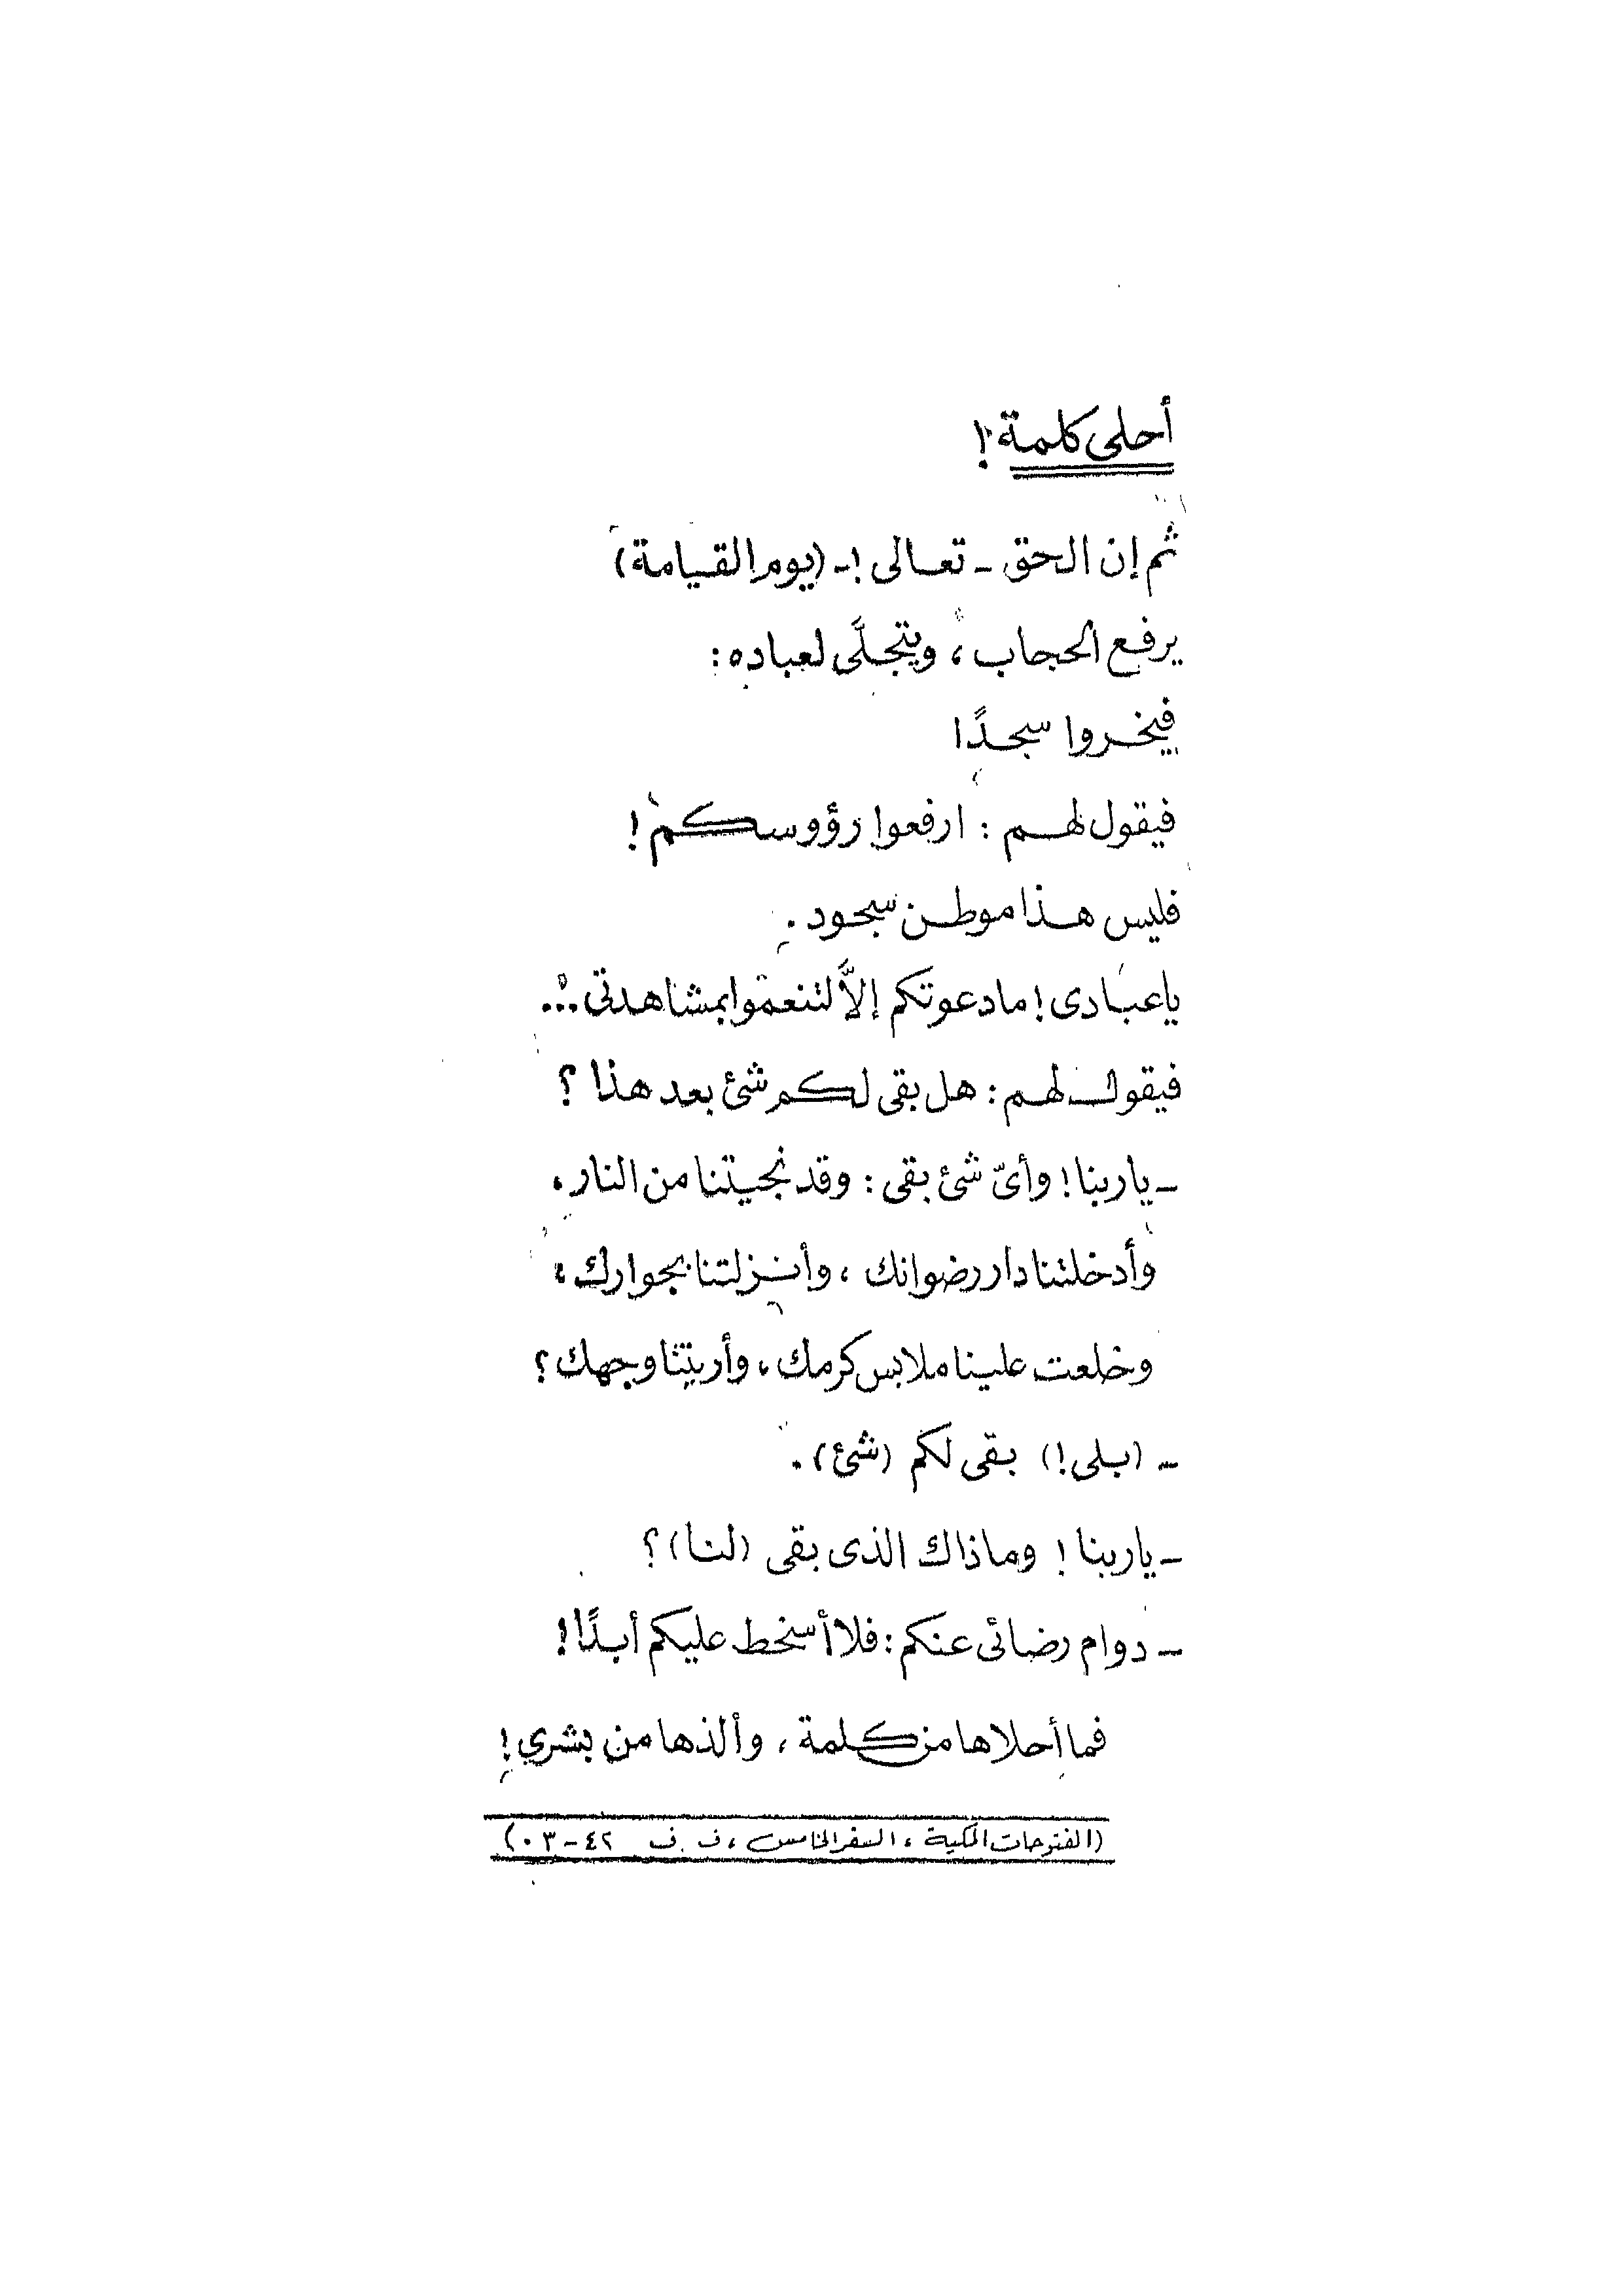 أحلى كلمة!
ثم إن الحق - تعالى! - (يوم القيامة)
يرفع الحجاب، ويتجلَّى لعباده:
فيخروا سجدًا
فيقول لهم: ارفعوا رؤوسكم!
فليس هذا موطن سجود.
يا عبادى! ما دعوتكم إلاَّ لتنعموا بمشاهدتى...
فيقول لهم: هل بقى لكم شئ بعد هذا؟
- يا ربنا! وأىّ شئ بقى: وقد نجيتنا من النار،
وأدخلتنا دار رضوانك، وأنزلتنا بجوارك،
وخلعت علينا ملابس كرمك، وأريتنا وجهك؟
- (بلى!) بقى لكم (شئ).
- يا ربنا! وما ذاك الذى بقى (لنا)؟
- دوام رضائى عنكم: فلا أسخط عليكم أبدًا!
فما أحلاها من كلمة، وألذها من بشري!
(الفتوحات المكية، السفر الخامس، ف ف ٤٢-٠٣)